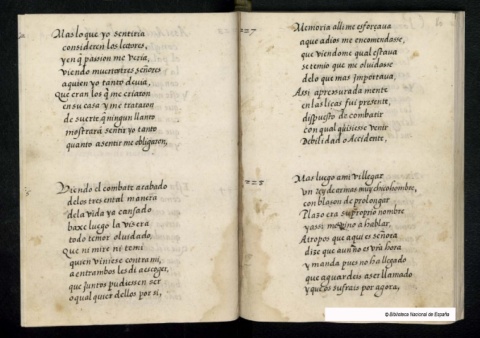 Mas lo que yo sentiria
consideren los letores,
y en q̃ passion me veria,
viendo muertos tres señores
a quien yo tanto devia,
Que eran los q̃ me criaron
en su casa y me trataron
de suerte q̃ ningun llanto
mostrara sentir yo tanto
quanto a sentir me obligaron,
Viendo el combate acabado
de los tres en tal manera
de la vida ya cansado
baxe luego la visera
todo temor olvidado,
Que ni mire ni temi
quien viniese contra mi,
a entrambos les di a escoger,
que juntos pudiessen ser
o qual quier dellos por si,
227
Memoria alli me esforçava
a que a dios me encomendasse,
que viendome qual estava
se temio que me olvidasse
de lo que mas importava,
Assi apressurada mente
en las liças fui presente,
dispuesto de combatir
con qual quisiesse venir
Debilidad o Accidente,
225
Mas luego a mi vi llegar
un rey de armas muy chico hombre,
con blason de prolongar
Plazo era su proprio nombre
y assi me vino a hablar,
Atropos que aqui es señora
dize que aun no es vra hora
y manda pues no ha llegado
que aguardeis a ser llamado
y que os sufrais por agora,
© Biblioteca Nacional de España